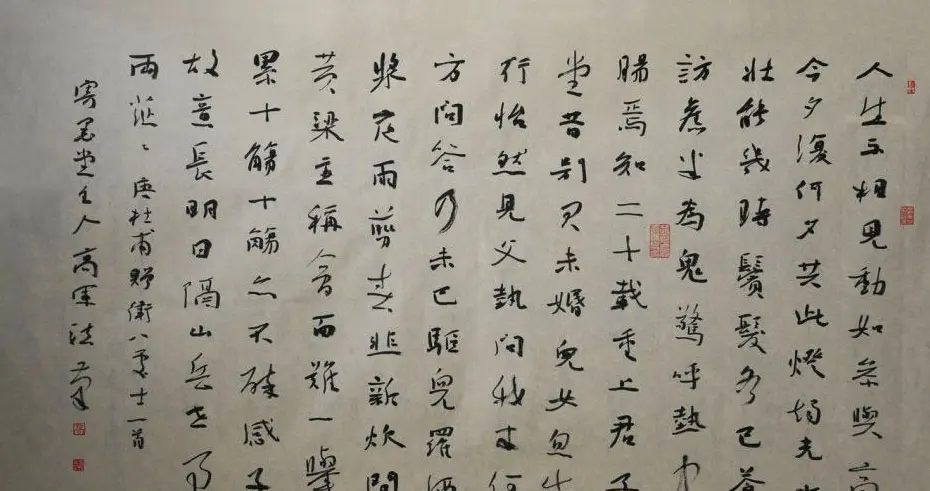 人生不相見動如參與商
今夕復何夕共此燈燭光
壯能幾時鬢髮各已蒼
訪舊半為鬼驚呼熱中
腸焉知二十載重上君子
堂昔別君未婚兒女忽成
行怡然見父執問我來何
方問答乃未已驅兒羅酒
漿夜雨剪春韭新炊間
黃粱主稱會面難一舉
累十觴十觴亦不醉感子
故意長明日隔山岳世事
兩茫〻 唐杜甫贈衛八處士一首
寄墨堂主人高軍法